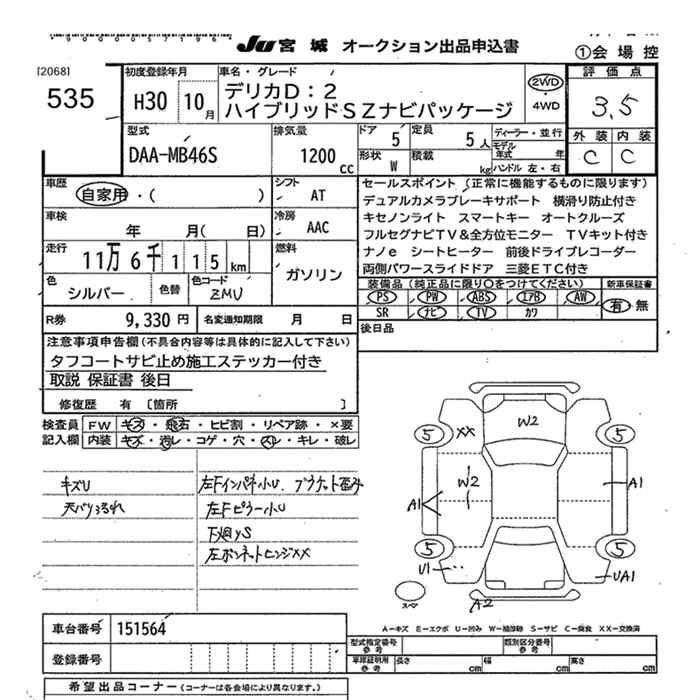 JU 宮城 オークション出品申込書
①会場控
[2068]
535
初度登録年月
H30 10月
車名・グレード
デリカD：2
ハイブリッドSZナビパッケージ
2WD
4WD
評価点
3.5
外装 内装
C C
型式
DAA-MB46S
排気量
1200cc
ドア
5
定員
5人
形状
W
積載
kg
ディーラー・並行
モデル年式 年
ハンドル 左・右
車歴
自家用・( )
シフト
AT
車検
年 月( 日)
冷房
AAC
走行
11万6千115km
燃料
ガソリン
色
シルバー
色替
色コード
ZMU
R券
9,330円
名変通知期限 月 日
セールスポイント (正常に機能するものに限ります)
デュアルカメラブレーキサポート 横滑り防止付き
キセノンライト スマートキー オートクルーズ
フルセグナビTV＆全方位モニター TVキット付き
ナノe シートヒーター 前後ドライブレコーダー
両側パワースライドドア 三菱ETC付き
装備品 (純正品に限り○をつけてください)
新車保証書
PS PW ABS エアB AW
有・無
SR ナビ TV カワ
後日品
注意事項申告欄(不具合内容等は具体的に記入して下さい)
タフコートサビ止め施工ステッカー付き
取説 保証書 後日
修復歴 有 [箇所 ]
検査員記入欄
FW キズ・飛石・ヒビ割・リペア跡・×要
内装 キズ・汚レ・コゲ・穴・スレ・キレ・破レ
キズU
天バリよごれ
左Fインパネ小U
左Fピラー小U
下廻りS
左ボンネットヒンジXX
5 XX W2 5
A1 W2 A1
5 5
U1 UA1
スペア
A2
A－キズ E－エクボ U－凹み W－補修跡 S－サビ C－腐食 XX－交換済
車台番号
151564
登録番号
型式指定番号 参考
類別区分番号 参考
車庫証明用 参考
長さ cm
幅 cm
高さ cm
希望出品コーナー (コーナーは各会場により異なります。)